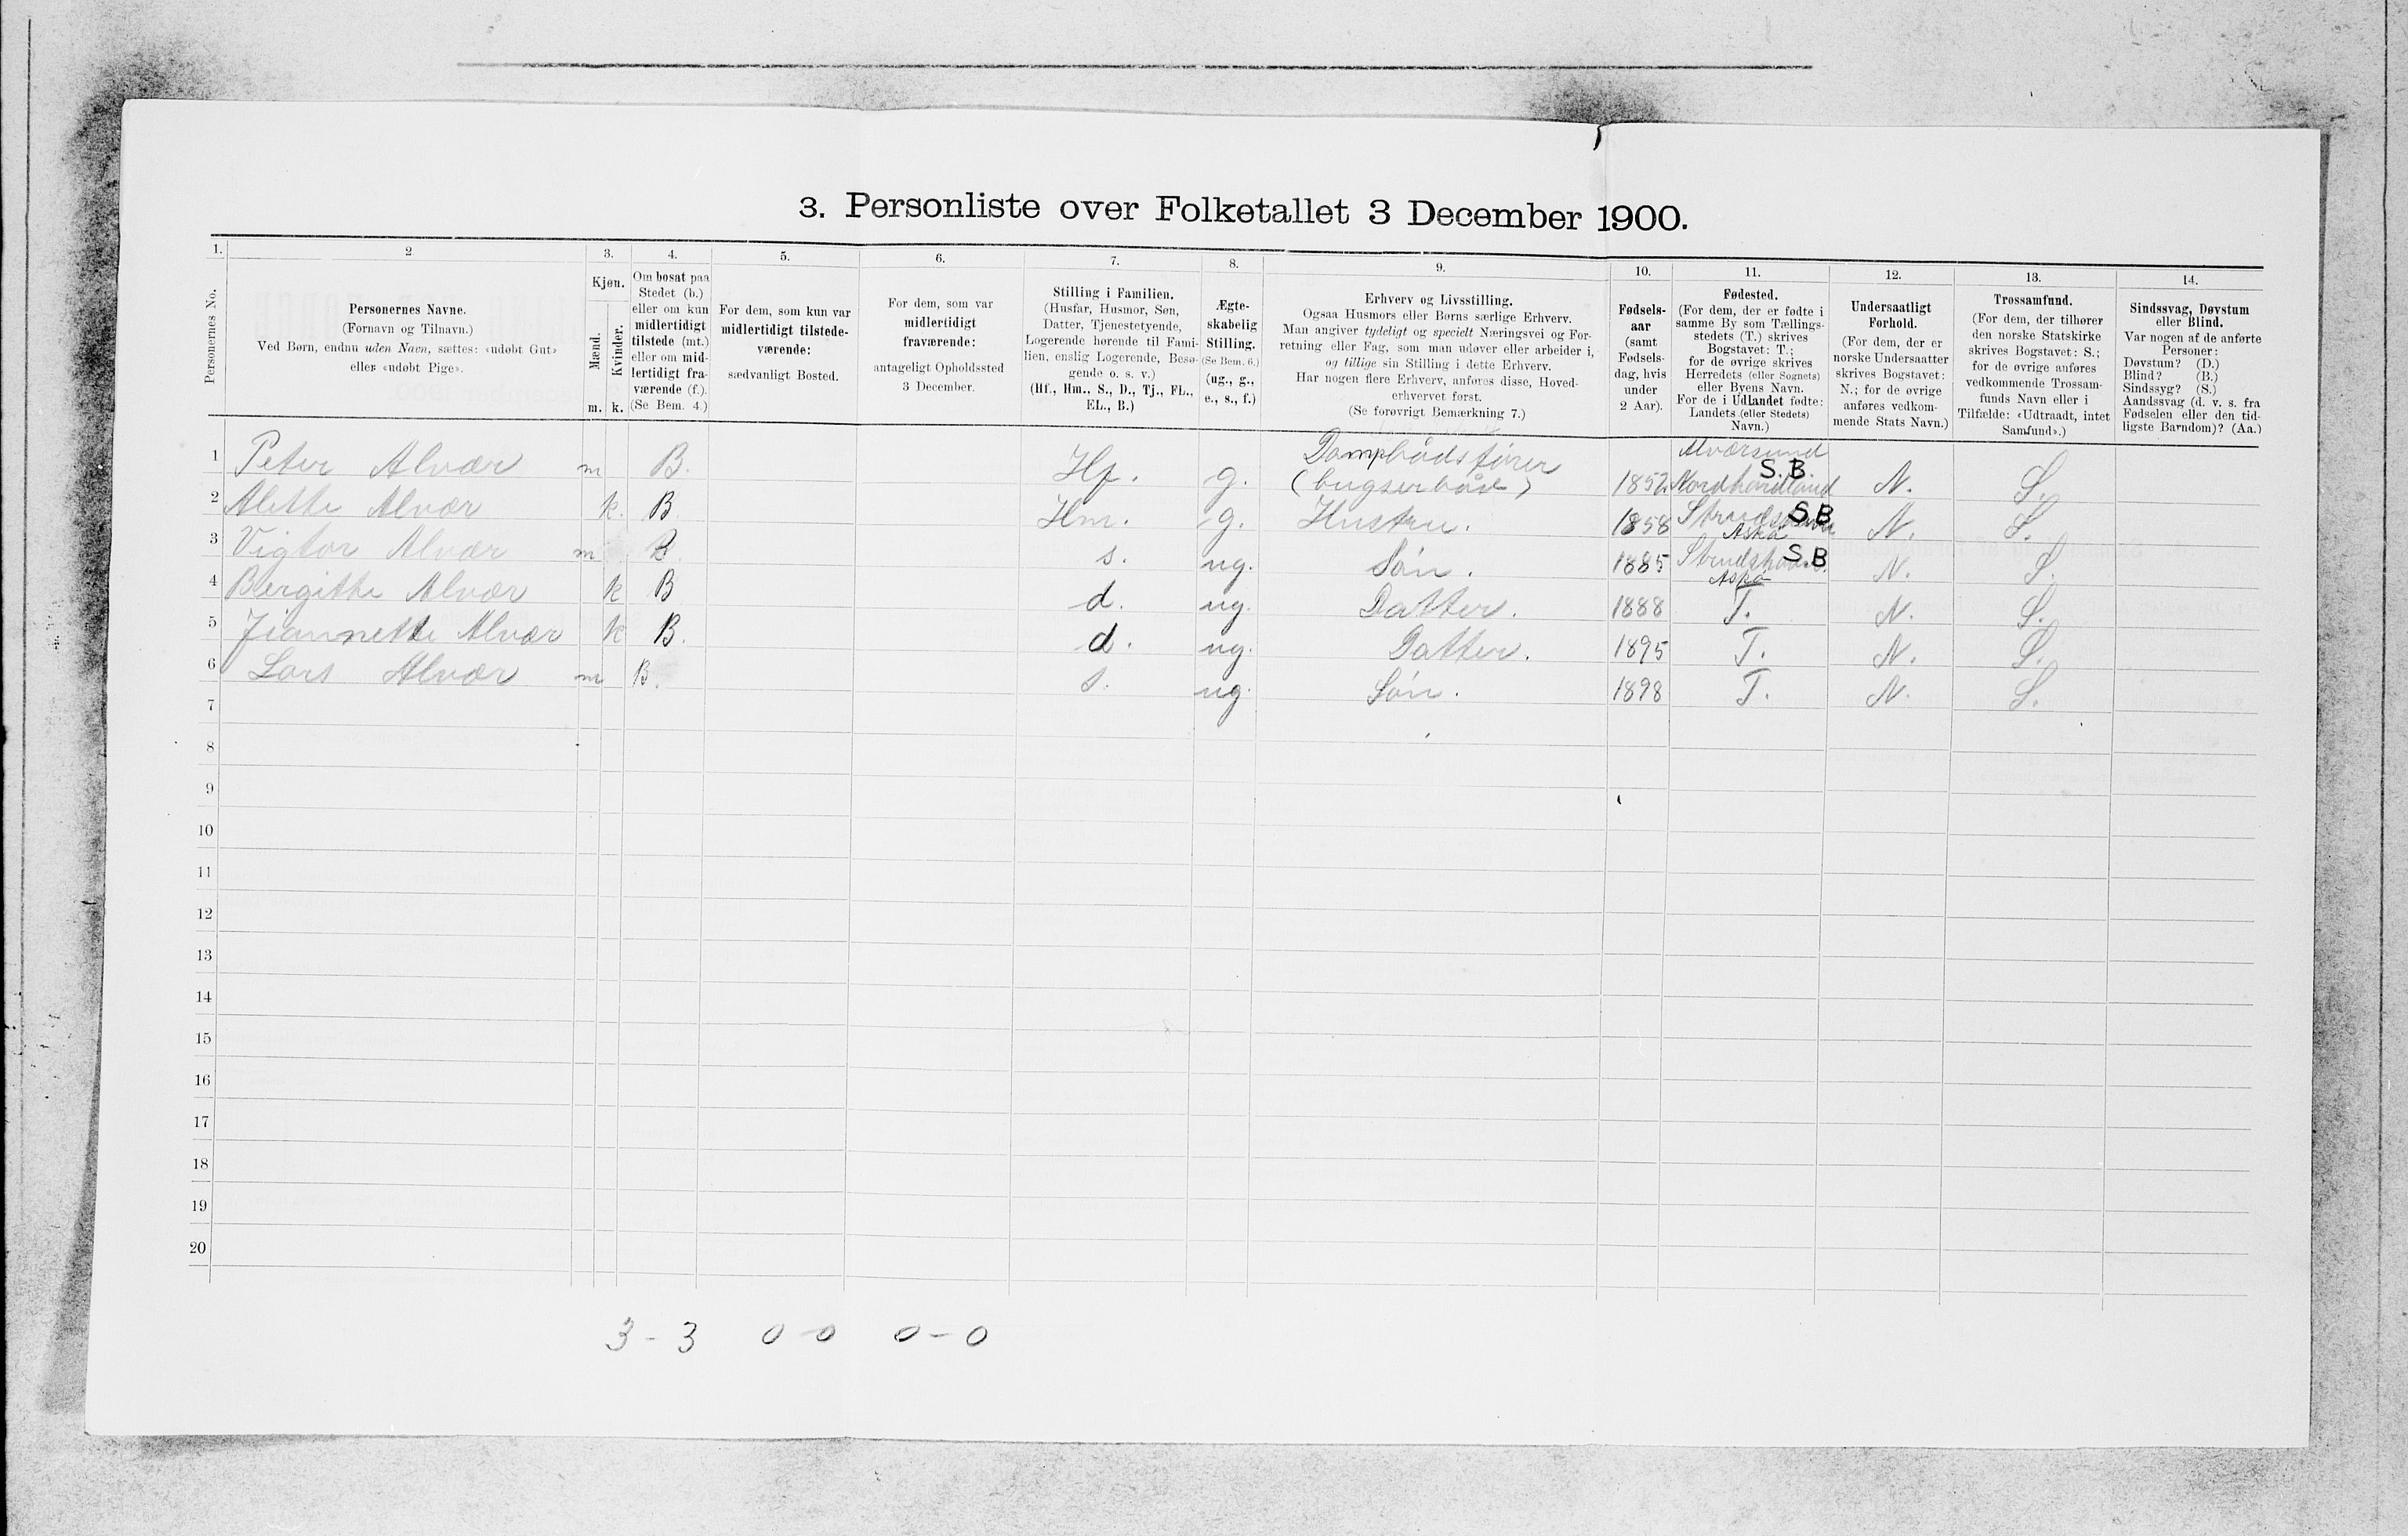 3. Personliste over Folketallet 3 December 1900.
1. 2 3. 4. 5. 6. 7. 8. 9. 10. 11. 12. 13. 14.
Personernes No.
Personernes Navne.
(Fornavn og Tilnavn.)
Ved Børn, endnu uden Navn, sættes: «udøbt Gut»
eller «udøbt Pige».
Kjøn.
Mænd.
Kvinder.
m. k.
Om bosat paa
Stedet (b.)
eller om kun
midlertidigt
tilstede (mt.)
eller om mid-
lertidigt fra-
værende (f.).
(Se Bem. 4.)
For dem, som kun var
midlertidigt tilstede-
værende:
sædvanligt Bosted.
For dem, som var
midlertidigt
fraværende:
antageligt Opholdssted
3 December.
Stilling i Familien.
(Husfar, Husmor, Søn,
Datter, Tjenestetyende,
Logerende hørende til Fami-
lien, enslig Logerende, Besø-
gende o. s. v.)
(Hf., Hm., S., D., Tj., FL.,
EL., B.)
Ægte-
skabelig
Stilling.
(Se Bem. 6.)
(ug., g.,
e., s., f.)
Erhverv og Livsstilling.
Ogsaa Husmors eller Børns særlige Erhverv.
Man angiver tydeligt og specielt Næringsvei og For-
retning eller Fag, som man udøver eller arbeider i,
og tillige sin Stilling i dette Erhverv.
Har nogen flere Erhverv, anføres disse, Hoved-
erhvervet først.
(Se forøvrigt Bemærkning 7.)
Fødsels-
aar
(samt
Fødsels-
dag, hvis
under
2 Aar).
Fødested.
(For dem, der er fødte i
samme By som Tællings-
stedets (T.) skrives
Bogstavet: T.;
for de øvrige skrives
Herredets (eller Sognets)
eller Byens Navn.
For de i Udlandet fødte:
Landets (eller Stedets)
Navn.)
Undersaatligt
Forhold.
(For dem, der er
norske Undersaatter
skrives Bogstavet:
N.; for de øvrige
anføres vedkom-
mende Stats Navn.)
Trossamfund.
(For dem, der tilhører
den norske Statskirke
skrives Bogstavet: S.;
for de øvrige anføres
vedkommende Trossam-
funds Navn eller i
Tilfælde: «Udtraadt, intet
Samfund».)
Sindssvag, Døvstum
eller Blind.
Var nogen af de anførte
Personer:
Døvstum? (D.)
Blind? (B.)
Sindssyg? (S.)
Aandssvag (d. v. s. fra
Fødselen eller den tid-
ligste Barndom)? (Aa.)
Dampbådsfører Alværsund
1 Peter Alvær m B. Hf. g. (bugserbåd) 1852 Nordhordland S.B. N. S.
2 Alette Alvær k. B Hm. g. Hustru. 1858 S.B
Askø N. S.
3 Vigtor Alvær m B. s. ug. Søn. 1885 Strudshavn. S.B
Askø N. S.
4 Bergitte Alvær k B d. ug. Datter. 1888 T. N. S.
5 Jeannette Alvær k B. d. ug. Datter. 1895 T. N. S.
6 Lars Alvær m B. s. ug. Søn. 1898 T. N. S.
7
8
9
10
11
12
13
14
15
16
17
18
19
20
3 - 3 0 - 0 0 - 0